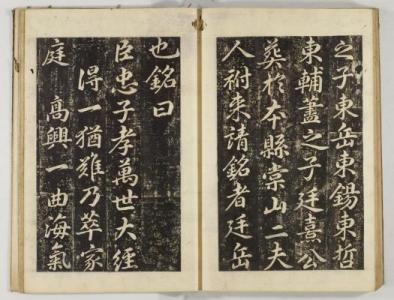 之子東岳東錫東哲
東輔藎之子廷熹公
葬於本縣棠山二夫
人祔来請銘者廷岳
也銘曰
臣忠子孝萬世大經
得一猶難乃萃家
庭　高興一曲海氣